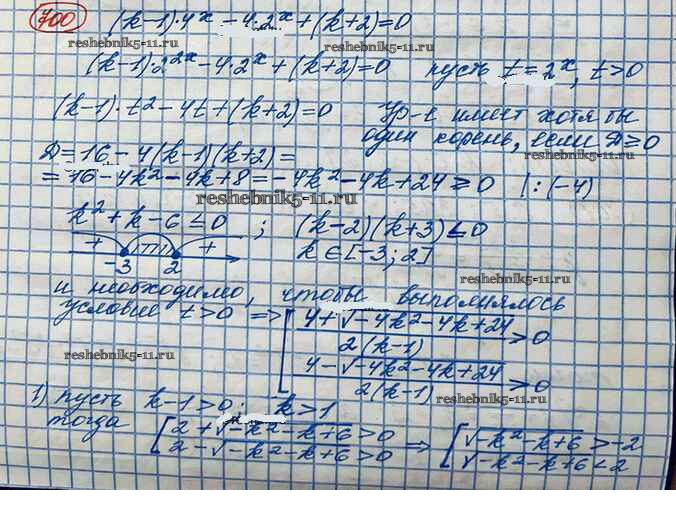 700 (k-1)·4ˣ - 4·2ˣ + (k+2) = 0
reshebnik5-11.ru
reshebnik5-11.ru
(k-1)·2²ˣ - 4·2ˣ + (k+2) = 0 пусть t = 2ˣ, t > 0
(k-1)·t² - 4t + (k+2) = 0 Ур-е имеет хотя бы
один корень, если D ≥ 0
D = 16 - 4(k-1)(k+2) =
reshebnik5-11.ru
= 16 - 4k² - 4k + 8 = -4k² - 4k + 24 ≥ 0 | : (-4)
reshebnik5-11.ru
k² + k - 6 ≤ 0 ; (k-2)(k+3) ≤ 0
+ +
-3 2 k ∈ [-3; 2]
reshebnik5-11.ru
и необходимо, чтобы выполнялось
условие t > 0 ⇒ [ (4 + √(-4k² - 4k + 24)) / (2(k-1)) > 0
(4 - √(-4k² - 4k + 24)) / (2(k-1)) > 0
reshebnik5-11.ru
1) пусть k-1 > 0; k > 1
reshebnik5-11.ru
тогда [ 2 + √(-k² - k + 6) > 0 ⇒ [ √(-k² - k + 6) > -2
2 - √(-k² - k + 6) > 0 √(-k² - k + 6) < 2
reshebnik5-11.ru